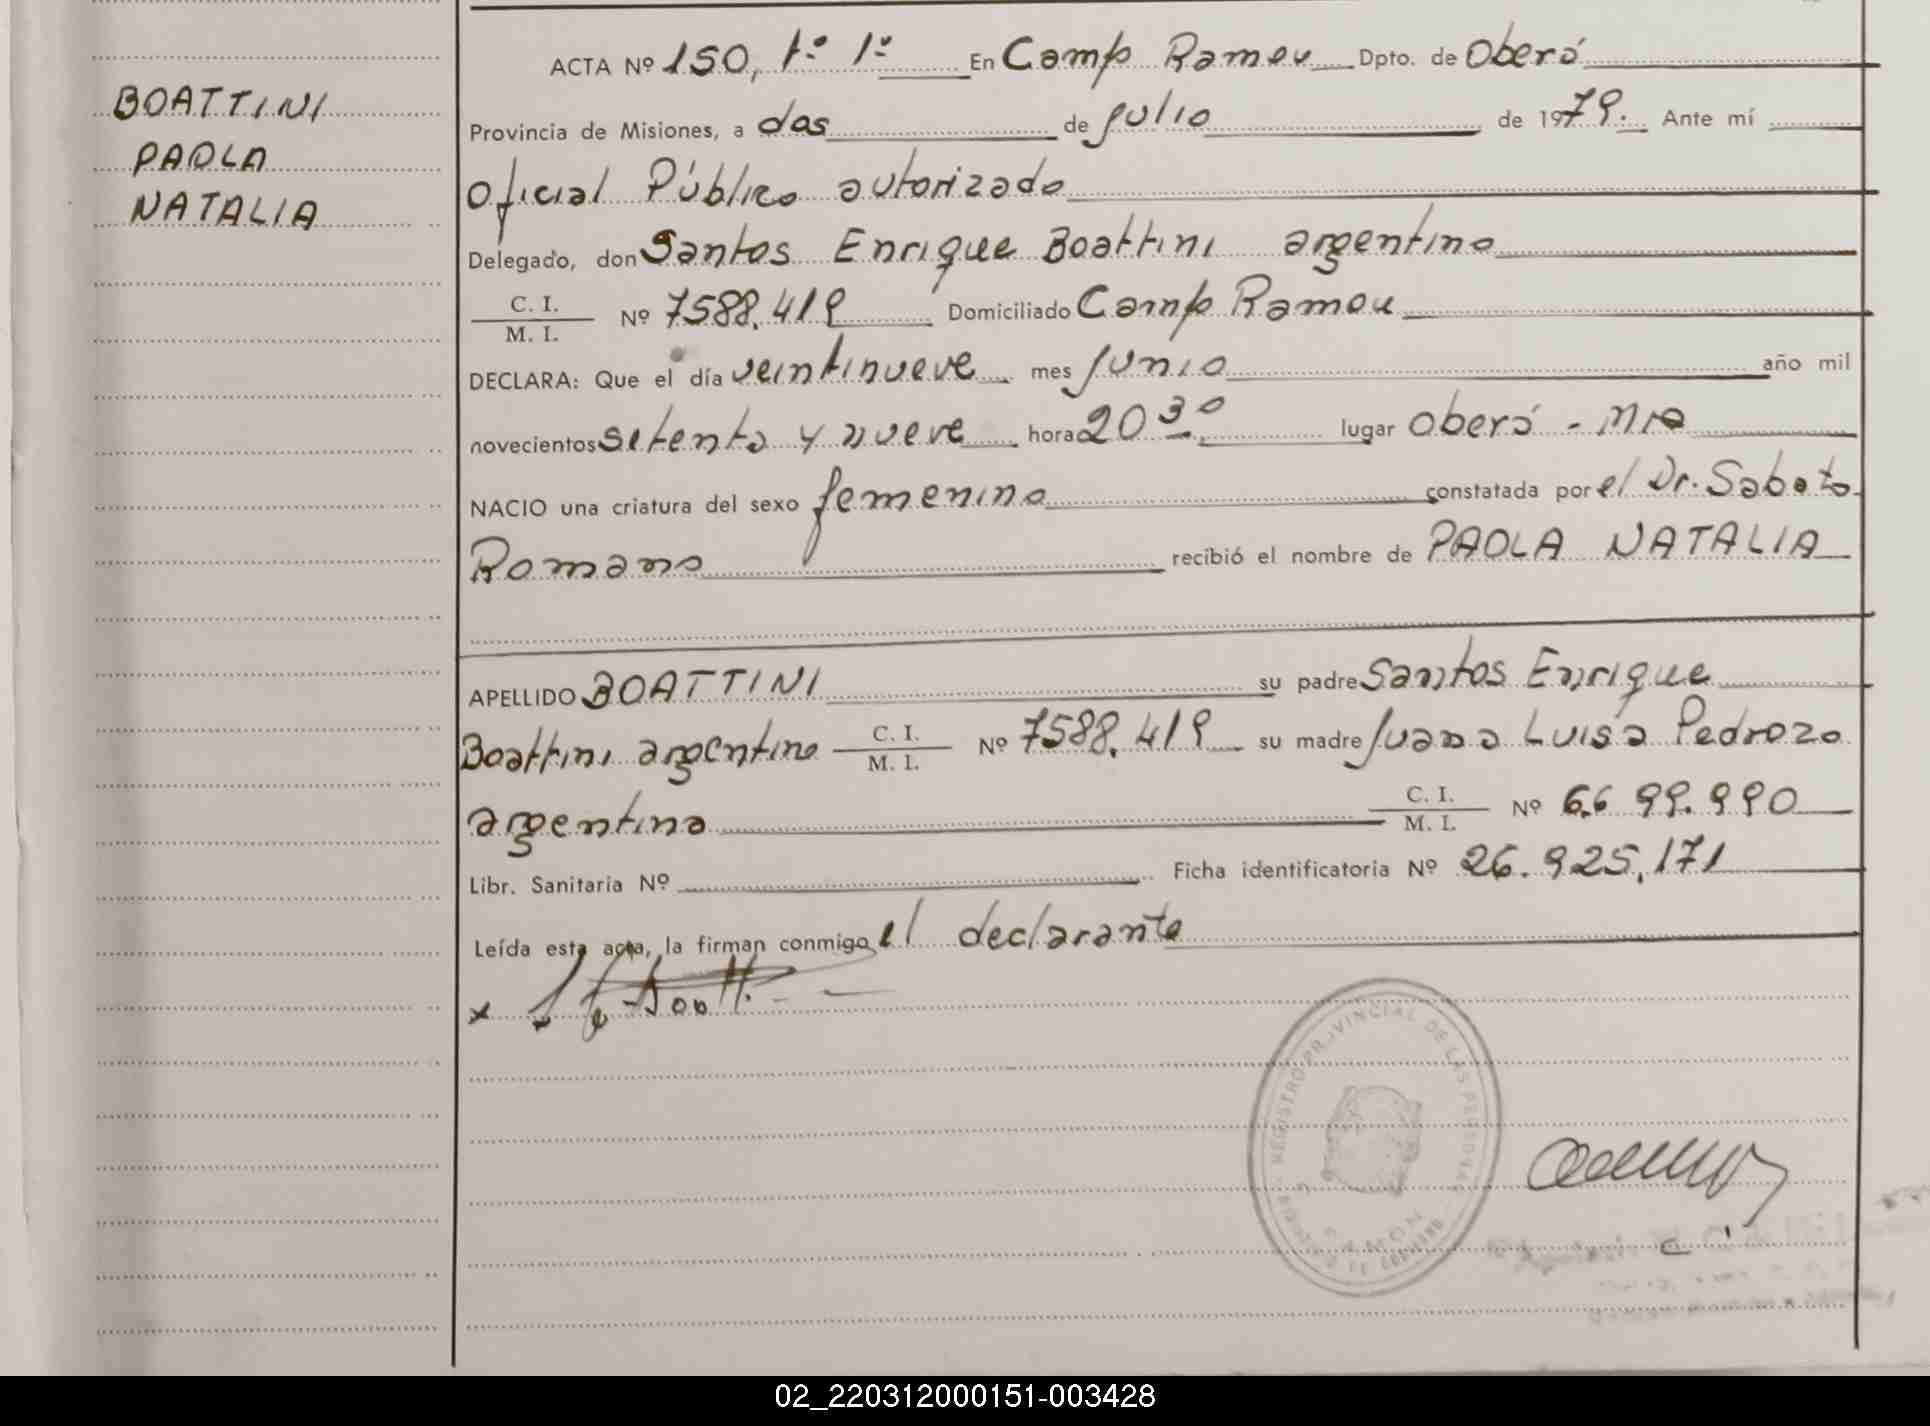 BOATTINI
PAOLA
NATALIA
ACTA Nº 150, tº 1º En Camp Ramon Dpto. de Oberá
Provincia de Misiones, a dos de julio de 1979. Ante mí
Oficial Público autorizado
Delegado, don Santos Enrique Boattini argentino
C. I.
M. I. Nº 7588.419 Domiciliado Camp Ramon
DECLARA: Que el día veintinueve mes junio año mil
novecientos setenta y nueve hora 20 30 lugar Oberá - Mnes
NACIO una criatura del sexo femenino constatada por el Dr. Sabato
Romano recibió el nombre de PAOLA NATALIA
APELLIDO BOATTINI su padre Santos Enrique
Boattini argentino C. I. M. I. Nº 7588.419 su madre Juana Luisa Pedrozo
argentina C. I. M. I. Nº 6.699.990
Libr. Sanitaria Nº Ficha identificatoria Nº 26.925.171
Leída esta acta, la firman conmigo el declarante
REGISTRO PROVINCIAL DE LAS PERSONAS
02_220312000151-003428